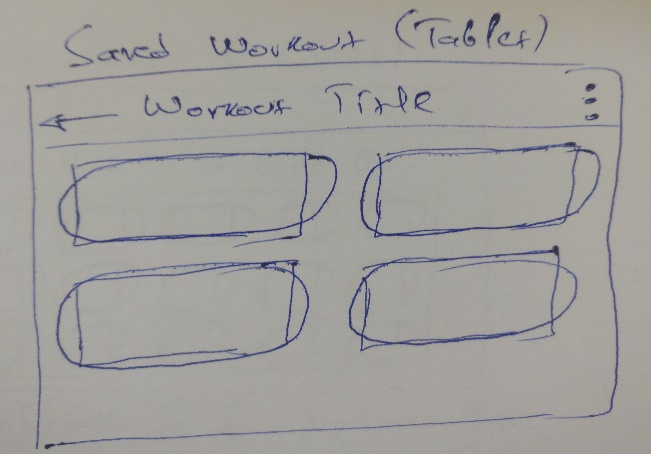 Saved Workout (Tablet)
Workout Title